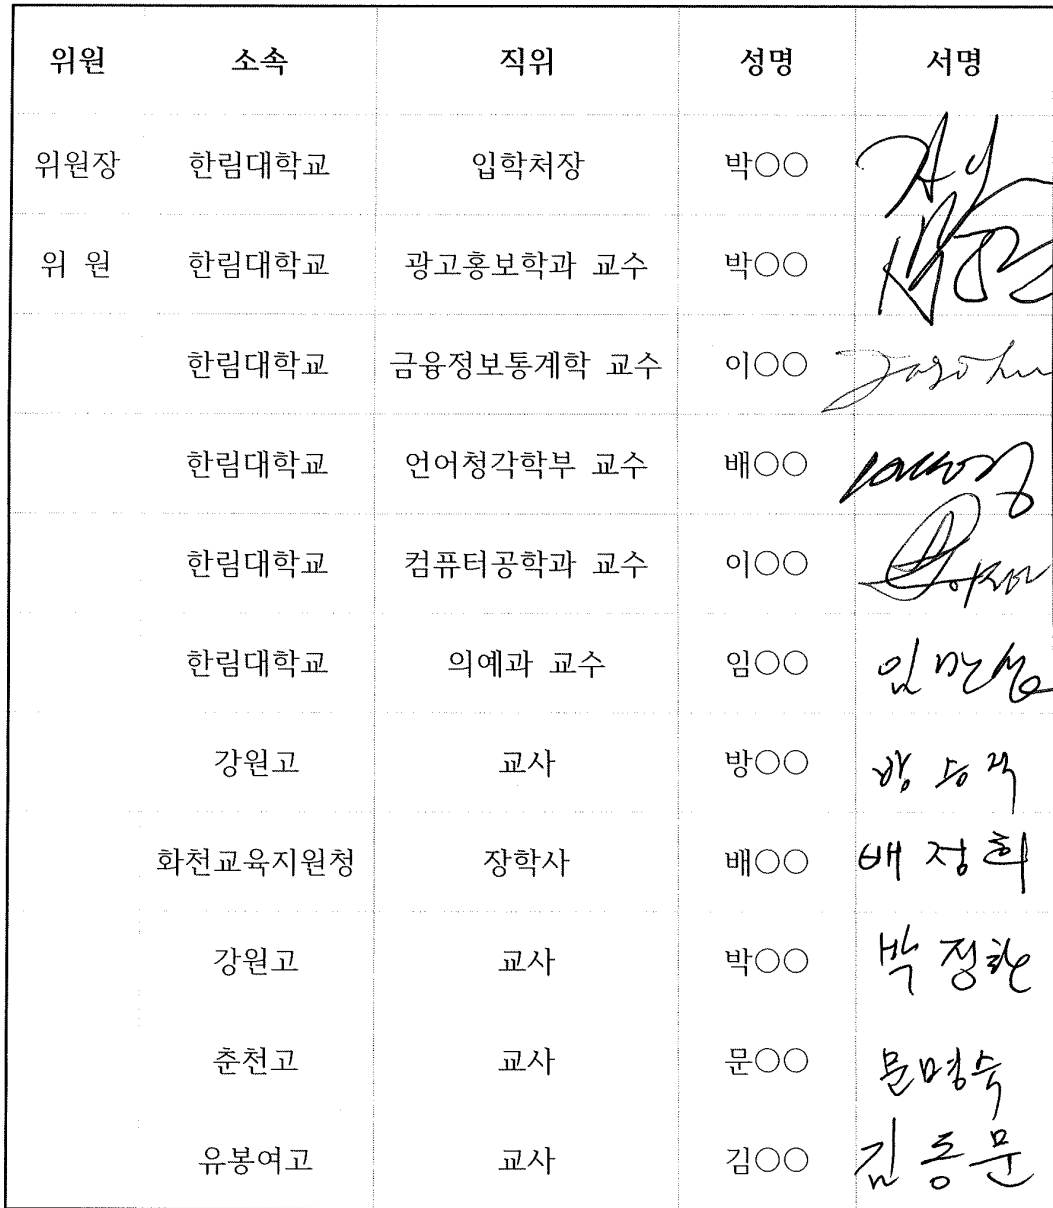 위원 소속 직위 성명 서명
위원장 한림대학교 입학처장 박○○
위 원 한림대학교 광고홍보학과 교수 박○○
한림대학교 금융정보통계학 교수 이○○
한림대학교 언어청각학부 교수 배○○
한림대학교 컴퓨터공학과 교수 이○○
한림대학교 의예과 교수 임○○
강원고 교사 방○○
화천교육지원청 장학사 배○○ 배정희
강원고 교사 박○○ 박정환
춘천고 교사 문○○ 문명숙
유봉여고 교사 김○○ 김동문